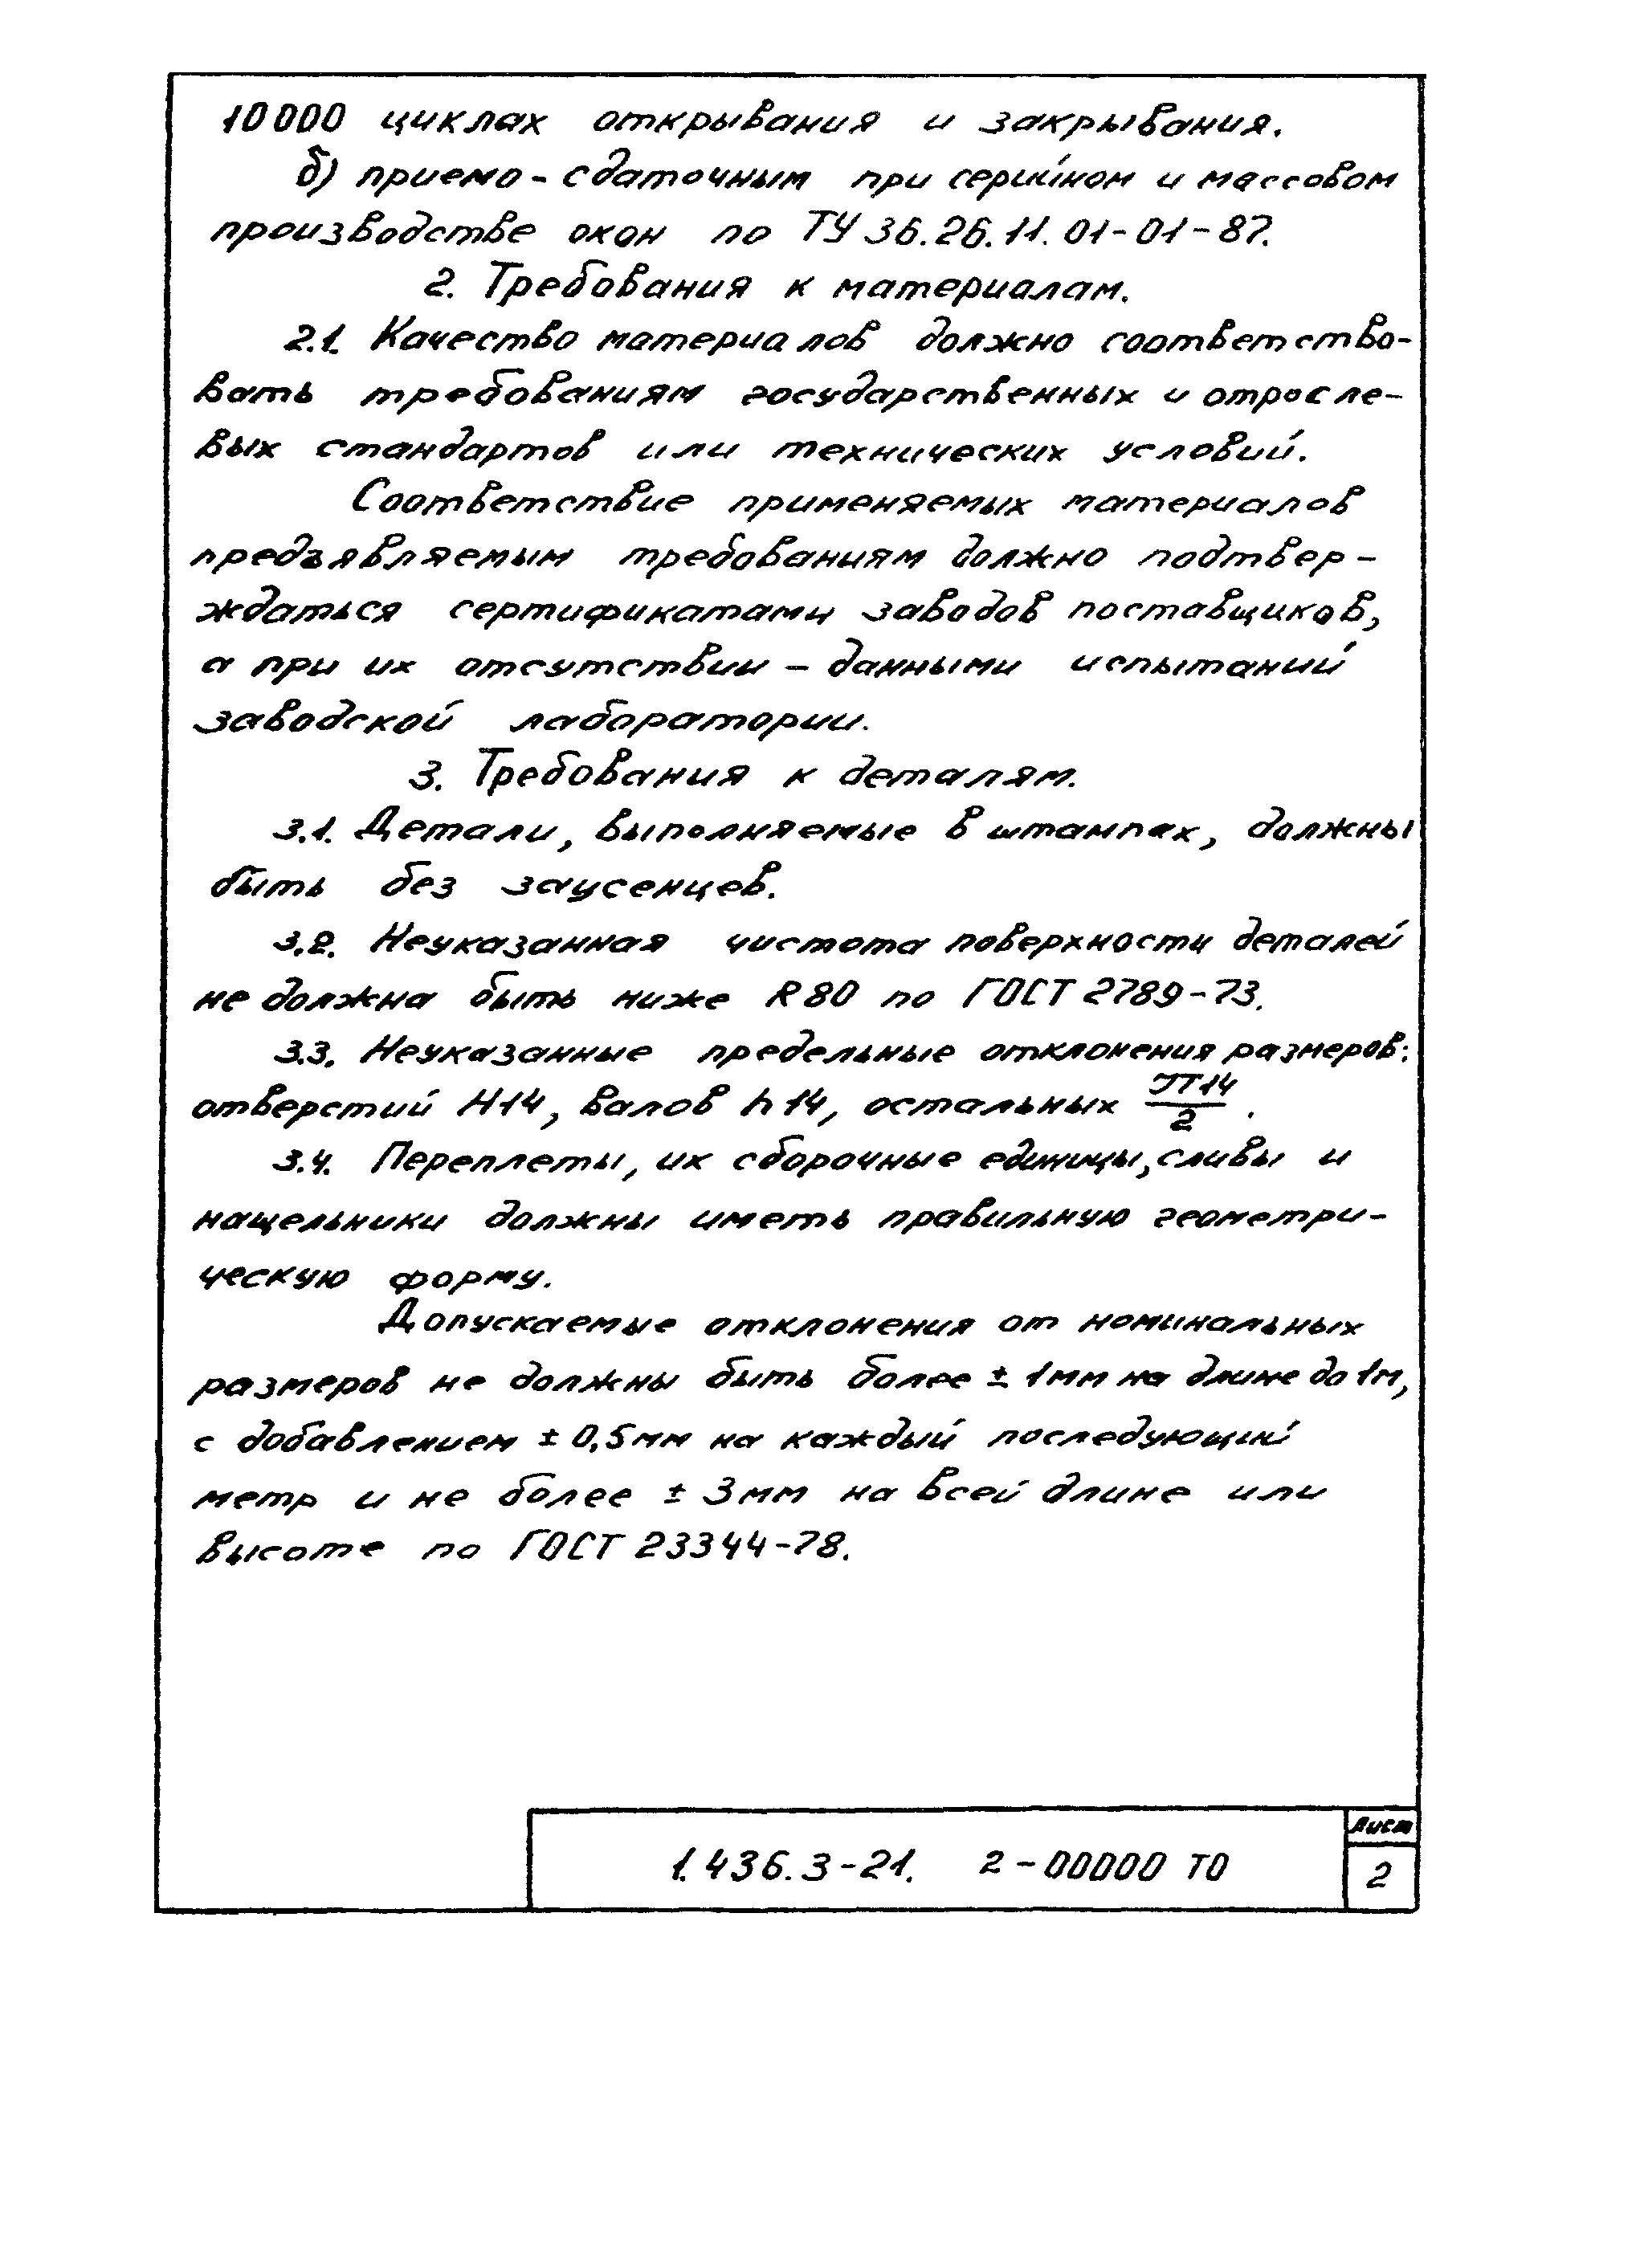 10000 циклах открывания и закрывания.
б) приемо-сдаточным при серийном и массовом
производстве окон по ТУ 36.26.11.01-01-87.
2. Требования к материалам.
2.1. Качество материалов должно соответство-
вать требованиям государственных и отрасле-
вых стандартов или технических условий.
Соответствие применяемых материалов
предъявляемым требованиям должно подтвер-
ждаться сертификатами заводов поставщиков,
а при их отсутствии – данными испытаний
заводской лаборатории.
3. Требования к деталям.
3.1. Детали, выполняемые в штампах, должны
быть без заусенцев.
3.2. Неуказанная чистота поверхности деталей
не должна быть ниже R80 по ГОСТ 2789-73.
3.3. Неуказанные предельные отклонения размеров:
отверстий H14, валов h14, остальных IT14/2.
3.4. Переплеты, их сборочные единицы, сливы и
нащельники должны иметь правильную геометри-
ческую форму.
Допускаемые отклонения от номинальных
размеров не должны быть более ± 1мм на длине до 1м,
с добавлением ± 0,5мм на каждый последующий
метр и не более ± 3мм на всей длине или
высоте по ГОСТ 23344-78.
1.436.3-21. 2-00000 ТО
Лист
2